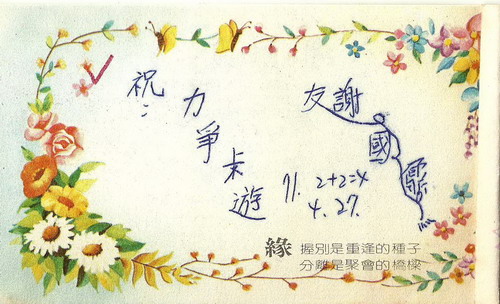 祝:
力爭卡遊
友 謝國
71. 2+2=4
4.27.
緣 握別是重逢的種子
分離是聚會的橋樑